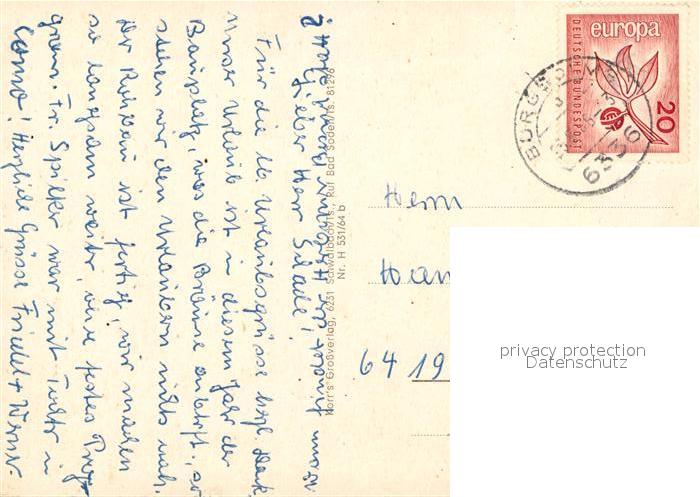 Lieber Herr Schade!
Für die lb. Urlaubsgrüsse herzl. Dank,
unser Urlaub ist in diesem Jahr der
Bauplatz, was die Bräune anbetrifft, so
stehen wir den Urlaubern nichts nach.
Der Rohbau ist fertig, wir machen
so langsam weiter, ohne festes Pro-
gram. Fr. Spilker war mit Tochter in
Como! Herzliche Grüsse Friedel + Werner
Korr's Großverlag, 6231 Schwalbach/Ts., Ruf Bad Soden/Ts. 81298
Nr. H 531/64 b
europa
DEUTSCHE BUNDESPOST
20
Herrn
64 19
privacy protection
Datenschutz